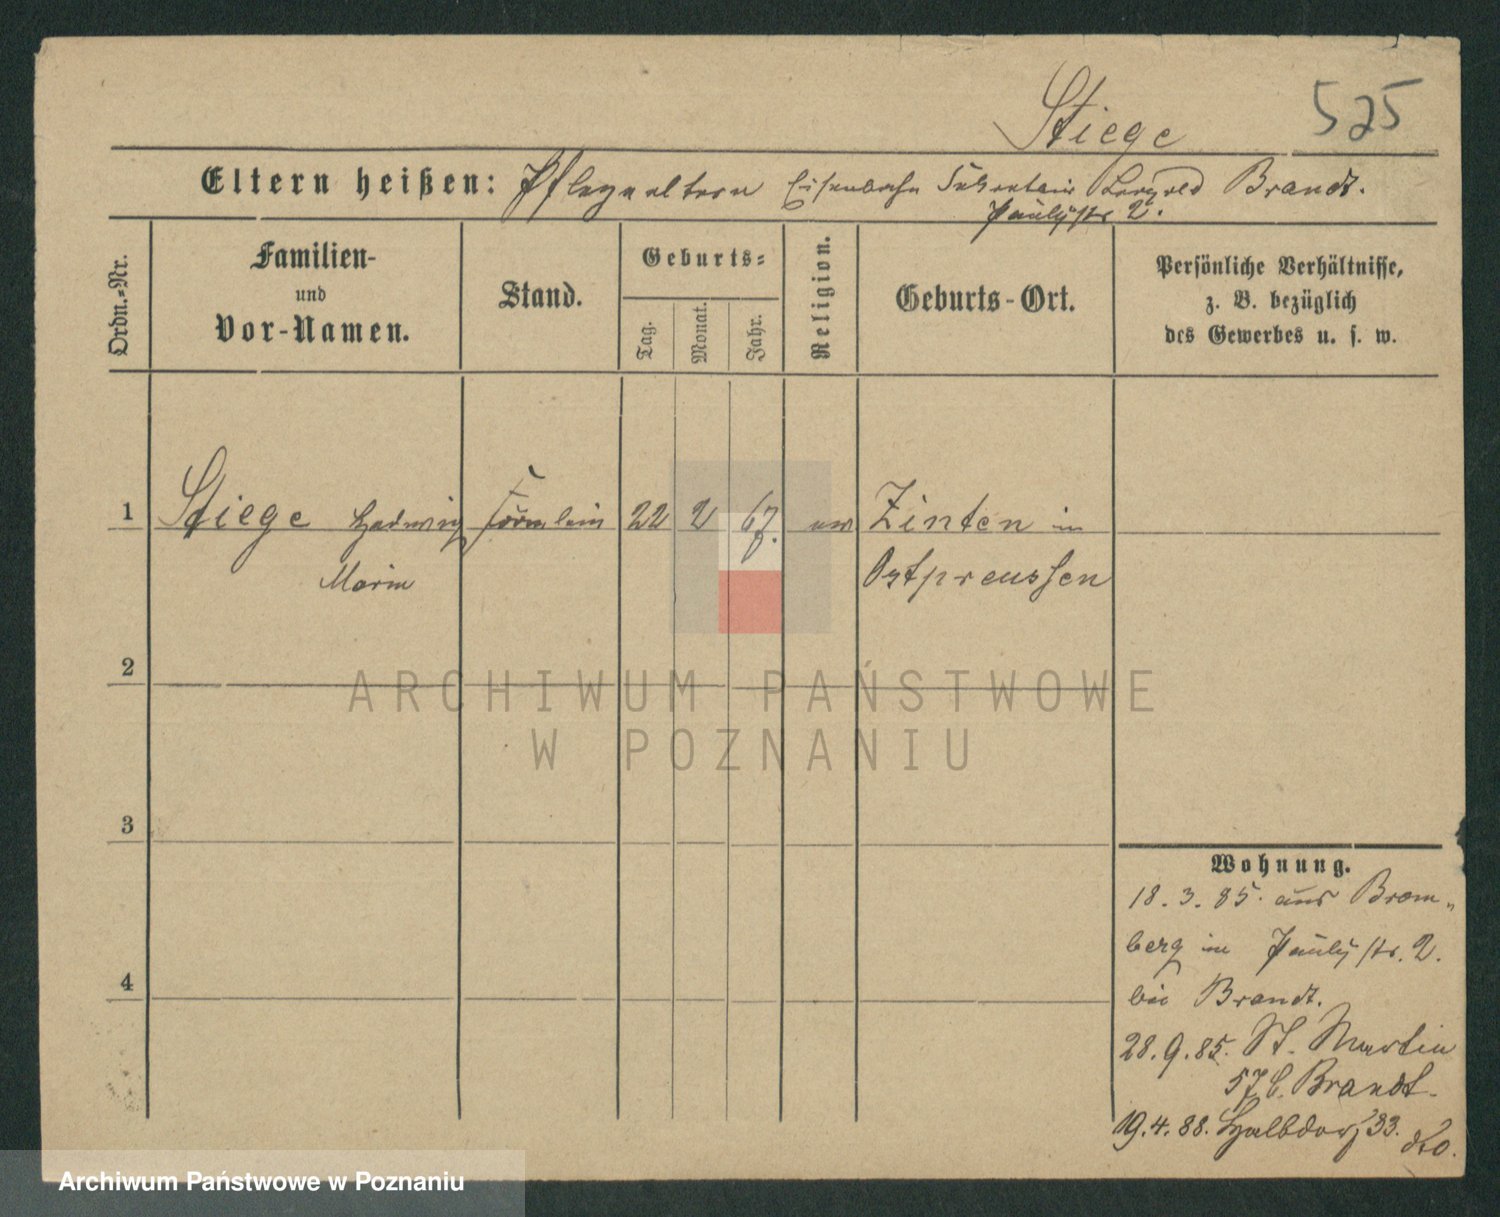 Stiege
525
Eltern heißen: Pflegeeltern Eisenbahn Sekretair Leopold Brandt.
Paulystr 2.
Ordn.=Nr.
Familien-
und
Vor-Namen.
Stand.
Geburts=
Tag.
Monat.
Jahr.
Religion.
Geburts-Ort.
Persönliche Verhältnisse,
z. B. bezüglich
des Gewerbes u. s. w.
1 Stiege Hedwig Fräulein 22 2 67. ev Zinten in
Marie Ostpreussen
2
3
4
Wohnung.
18.3.85. aus Brom„
berg in Paulystr. 2.
bei Brandt.
28.9.85. St. Martin
57 b. Brandt.
19.4.88. Halbdorf 33. dto.
ARCHIWUM PAŃSTWOWE
W POZNANIU
Archiwum Państwowe w Poznaniu